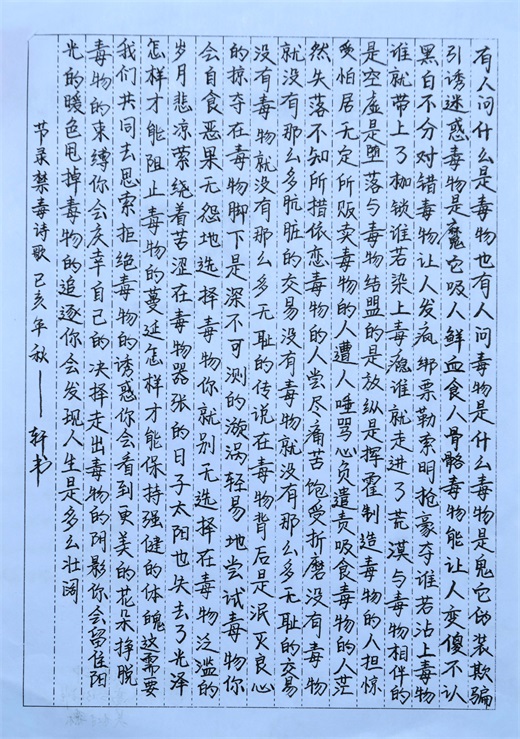 有人问什么是毒物也有人问毒物是什么毒物是鬼它伪装欺骗
引诱迷惑毒物是魔它吸人鲜血食人骨骼毒物能让人变傻不认
黑白不分对错毒物让人发疯绑票勒索明抢豪夺谁若沾上毒物
谁就带上了枷锁谁若染上毒瘾谁就走进了荒漠与毒物相伴的
是空虚是堕落与毒物结盟的是放纵是挥霍制造毒物的人担惊
受怕居无定所贩卖毒物的人遭人唾骂心负谴责吸食毒物的人茫
然失落不知所措依恋毒物的人尝尽痛苦饱受折磨没有毒物
就没有那么多肮脏的交易没有毒物就没有那么多无耻的交易
没有毒物就没有那么多无耻的传说在毒物背后是泯灭良心
的掠夺在毒物脚下是深不可测的漩涡轻易地尝试毒物你
会自食恶果无怨地选择毒物你就别无选择在毒物泛滥的
岁月悲凉萦绕着苦涩在毒物嚣张的日子太阳也失去了光泽
怎样才能阻止毒物的蔓延怎样才能保持强健的体魄这需要
我们共同去思索拒绝毒物的诱惑你会看到更美的花朵挣脱
毒物的束缚你会庆幸自己的决择走出毒物的阴影你会留住阳
光的暖色甩掉毒物的追逐你会发现人生是多么壮阔
节录禁毒诗歌 己亥年秋——轩书